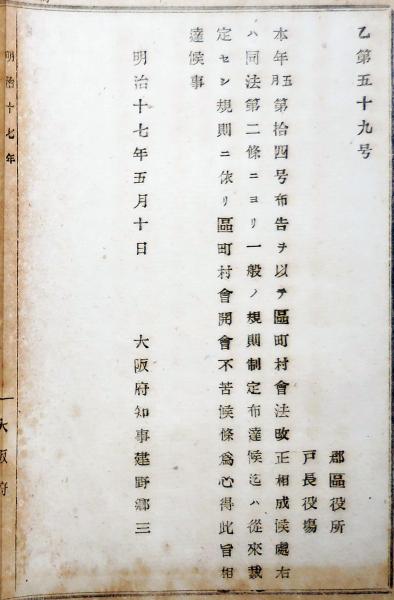 乙第五十九号
郡區役所
戸長役場
本年五月第拾四号布告ヲ以テ區町村會法改正相成候處右
ハ同法第二條ニヨリ一般ノ規則制定布達候迄ハ從來裁
定セシ規則ニ依リ區町村會開會不苦候條爲心得此旨相
達候事
明治十七年五月十日
大阪府知事建野郷三
明治十七年
大阪府